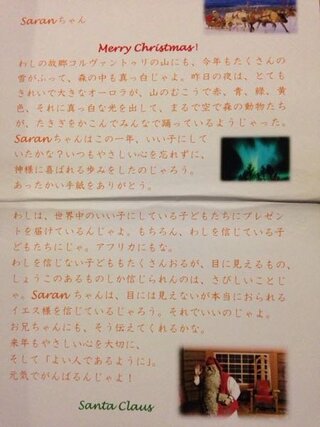 Saranちゃん
Merry Christmas!
わしの故郷コルヴァントゥリの山にも、今年もたくさんの
雪がふって、森の中も真っ白じゃよ。昨日の夜は、とても
きれいで大きなオーロラが、山のむこうで赤、青、緑、黄
色、それに真っ白な光を出して、まるで空で森の動物たち
が、たきぎをかこんでみんなで踊っているようじゃった。
Saranちゃんはこの一年、いい子にして
いたかな？いつもやさしい心を忘れずに、
神様に喜ばれる歩みをしたのじゃろう。
あったかい手紙をありがとう。
わしは、世界中のいい子にしている子どもたちにプレゼン
トを届けているんじゃよ。もちろん、わしを信じている子ど
もたちにじゃ。アフリカにもな。
わしを信じない子どももたくさんおるが、目に見えるもの、
しょうこのあるものしか信じられんのは、さびしいことじ
ゃ。Saranちゃんは、目には見えないが本当におられる
イエス様を信じているじゃろう。それでいいのじゃよ。
お兄ちゃんにも、そう伝えてくれるかな。
来年もやさしい心を大切に、
そして「よい人であるように」。
元気でがんばるんじゃよ！
Santa Claus